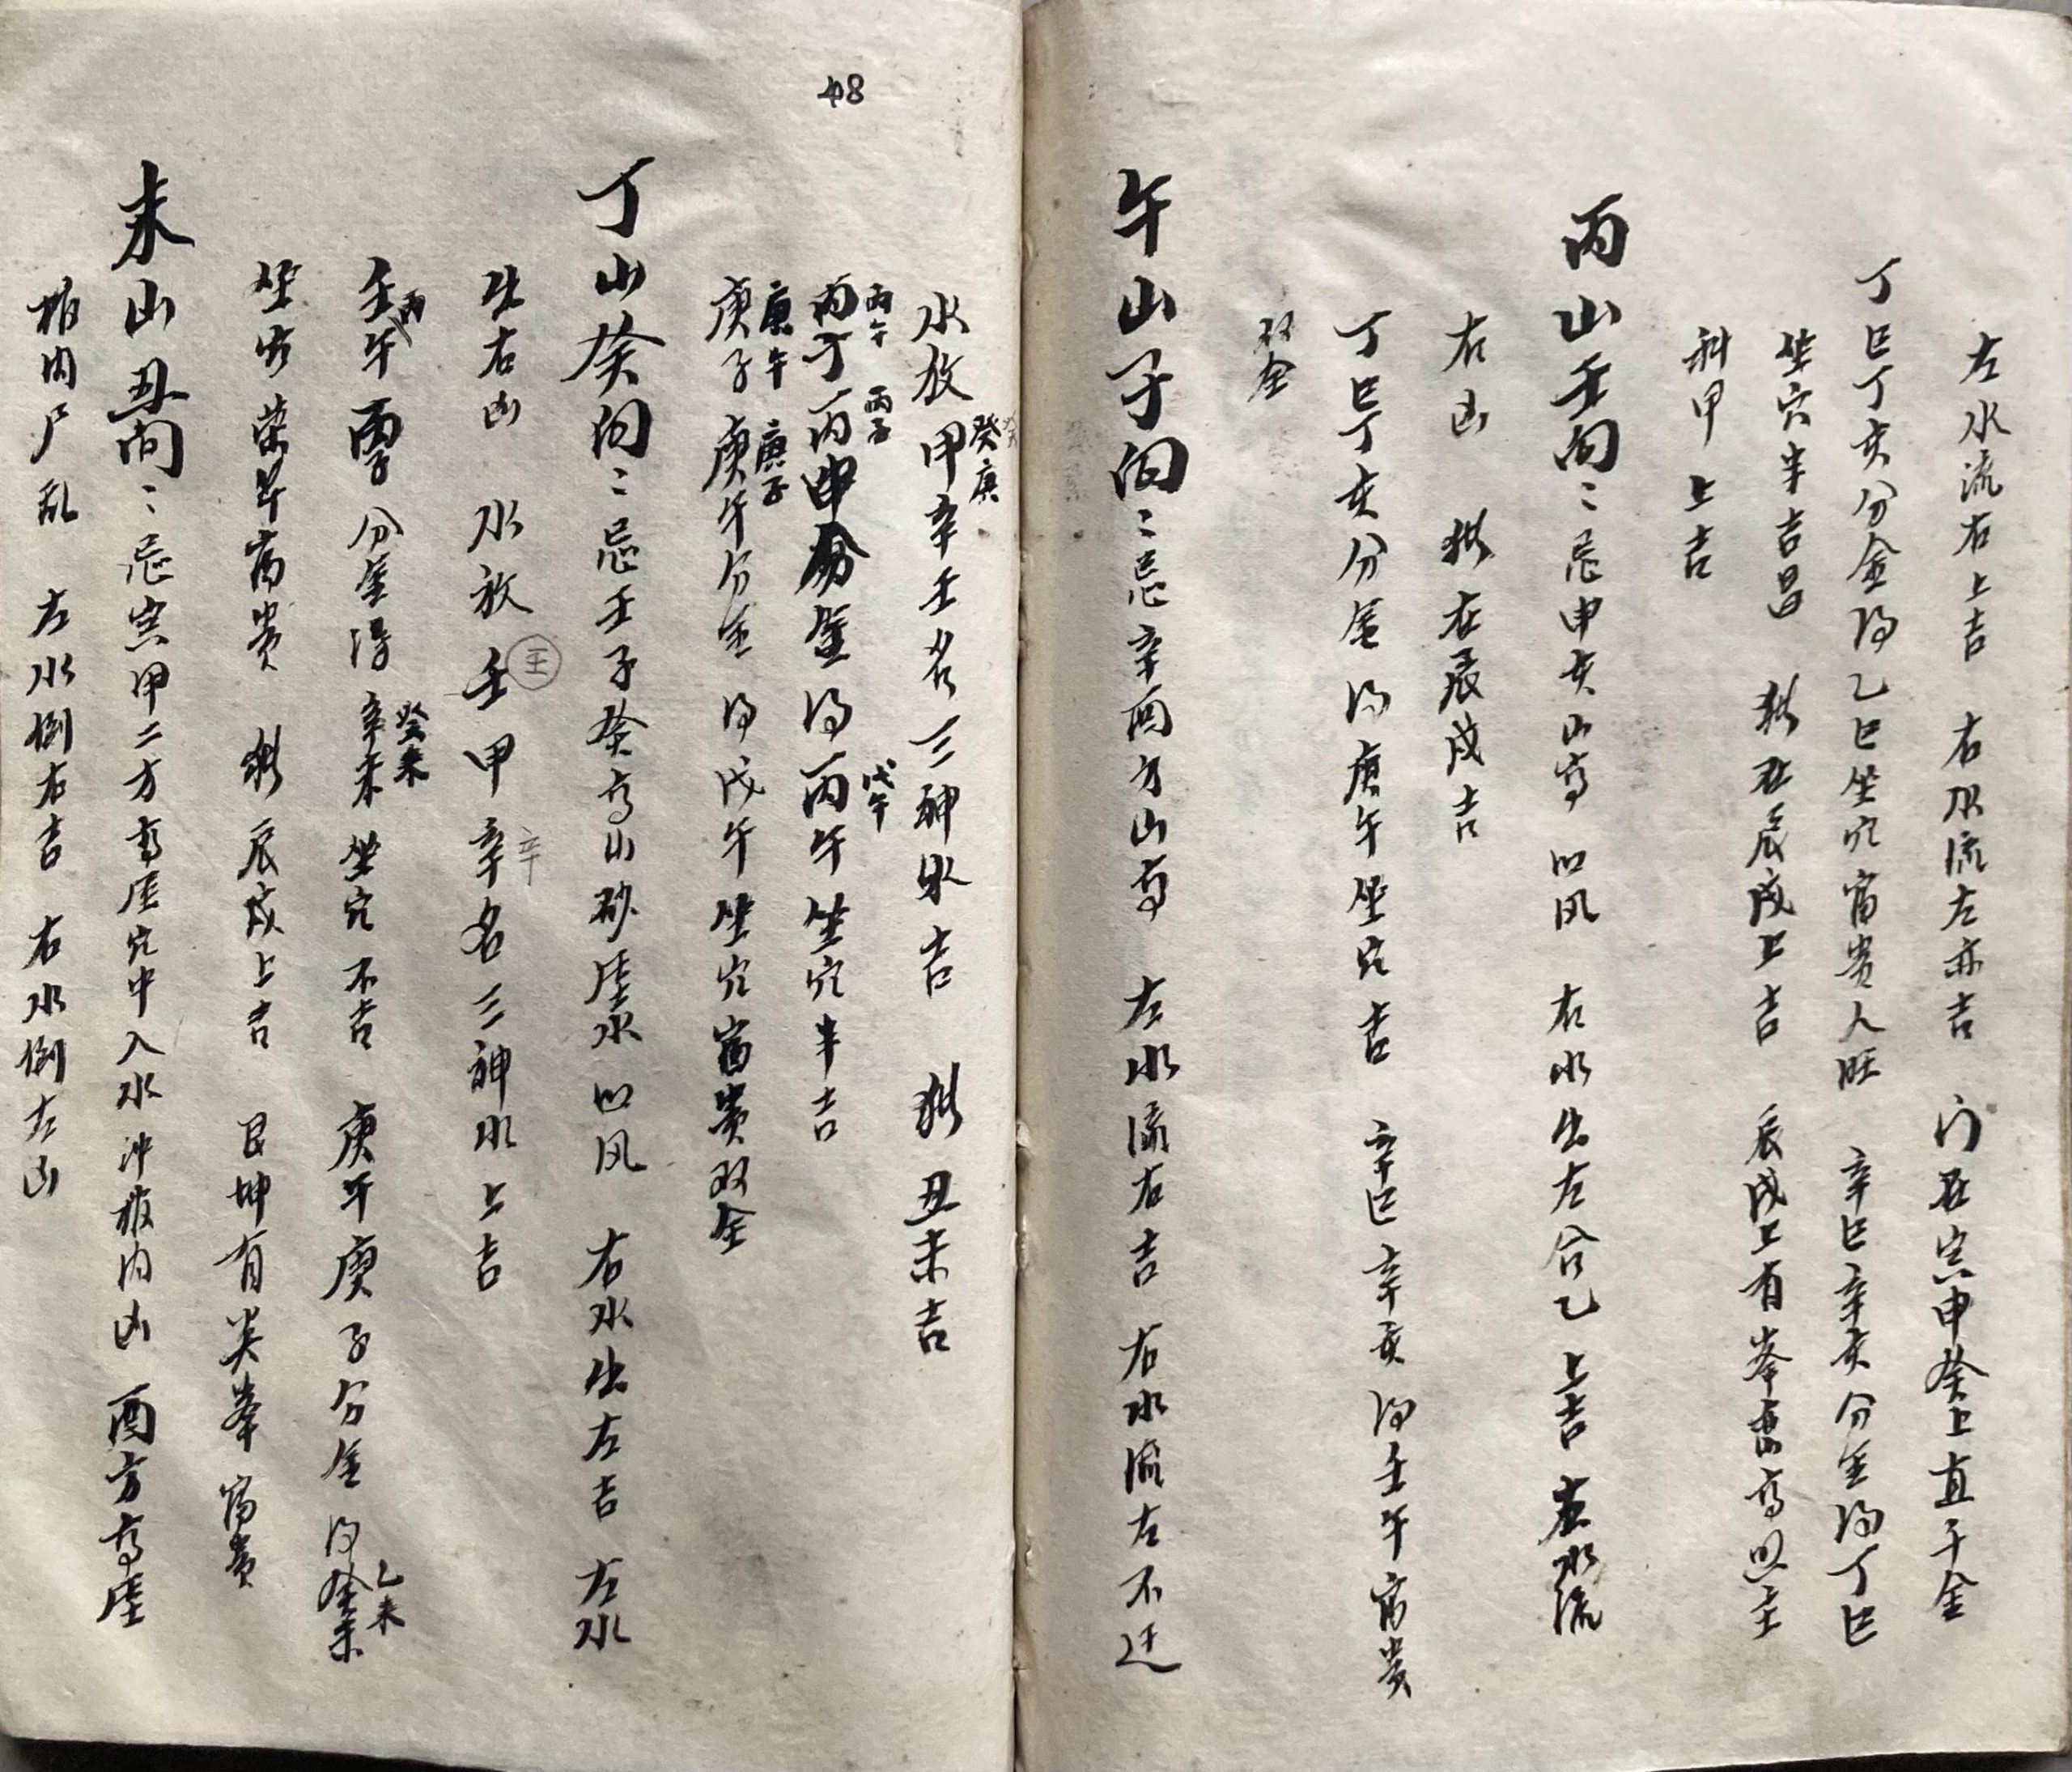 左水流右上吉 右水流左亦吉 门在寅申癸上直千金
丁巳丁亥分金得乙巳坐穴富贵人旺 辛巳辛亥分金得丁巳
坐穴半吉昌 在辰戌上吉 辰戌上有峯高
科甲上吉
丙山壬向〻忌申亥山高凹风 右水出左合乙上吉 左水流
右凶 在辰戌吉
丁巳丁亥分金得庚午坐穴吉 辛巳辛亥得壬午富贵
双全
午山子向〻忌辛酉方山高 左水流右吉 右水流左不迁
48
水放甲辛壬名三神水吉 丑未吉
癸庚
丙午 丙子
丙丁丙申分金得丙午坐穴半吉
戊午
庚午 庚子
庚子庚午分金得戊午坐穴富贵双全
丁山癸向〻忌壬子癸高山砂压水凹风 右水出左吉 左水
出右凶 水放壬甲辛名三神水上吉
王
辛
壬午 分金得辛未坐穴不吉 庚午庚子分金得癸未
丙
癸未
乙未
坐穴荣华富贵 辰戌上吉 艮坤有尖峯富贵
未山丑向〻忌寅甲二方高压穴中入水冲棺内凶 酉方高压
棺内尸乱 左水倒右吉 右水倒左凶